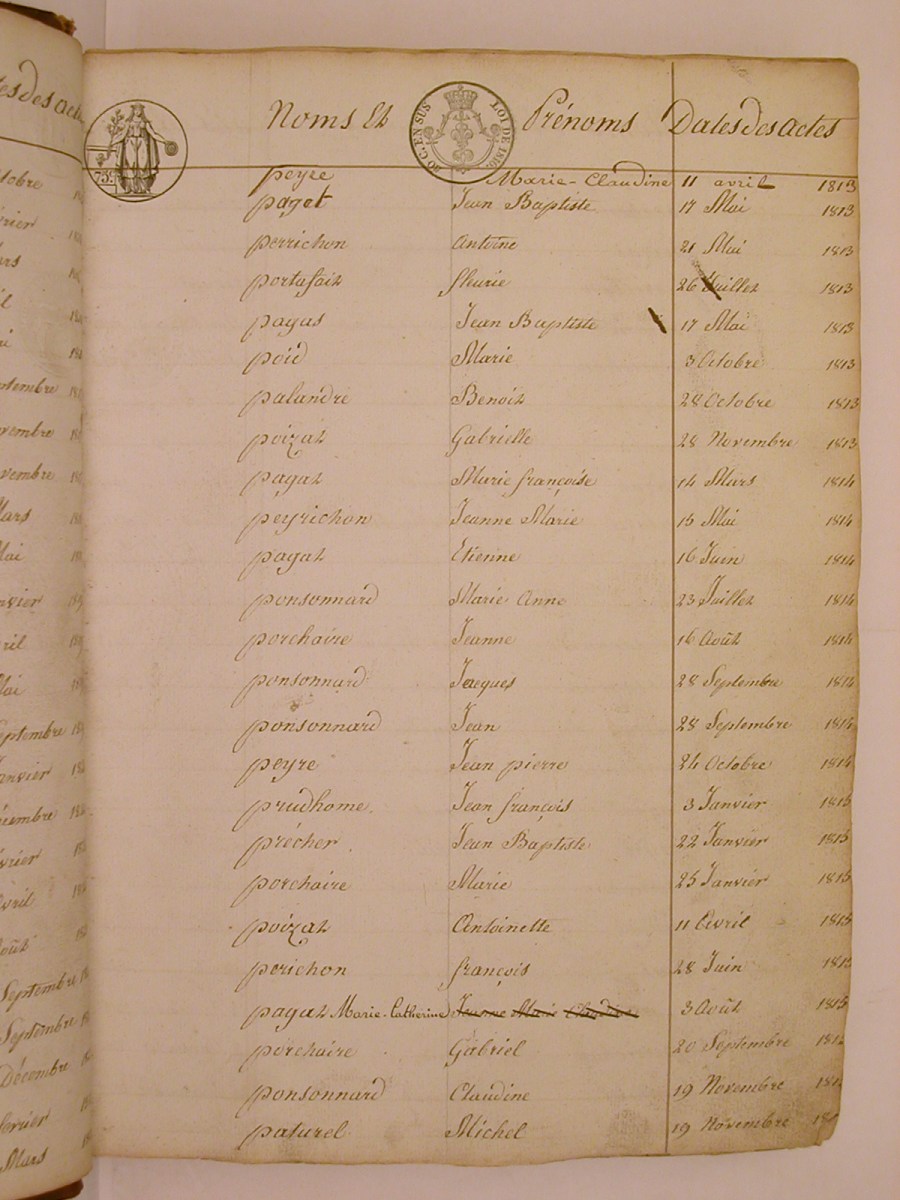 Noms Et Prénoms Dates des actes
75
RO G. EN SUS LOI DE 1816.
peyre Marie-Claudine 11 avril 1813
paget Jean Baptiste 17 Mai 1813
perrichon Antoine 21 Mai 1813
portafaix fleurie 26 Juillet 1813
payas Jean Baptiste 17 Mai 1813
poid Marie 3 Octobre 1813
palandre Benoit 28 Octobre 1813
poizat Gabrielle 28 Novembre 1813
pagat Marie françoise 14 Mars 1814
peyrichon Jeanne Marie 15 Mai 1814
pagat Etienne 16 Juin 1814
ponsonnard Marie Anne 23 Juillet 1814
porchaire Jeanne 16 Août 1814
ponsonnard Jacques 28 Septembre 1814
ponsonnard Jean 28 Septembre 1814
peyre Jean pierre 24 Octobre 1814
prudhome Jean françois 3 Janvier 1815
précher Jean Baptiste 22 Janvier 1815
porchaire Marie 25 Janvier 1815
poizat Antoinette 11 Avril 1815
perichon françois 28 Juin 1815
pagat Marie-Catherine Jeanne Marie Claudine 3 Août 1815
porchaire Gabriel 20 Septembre
ponsonnard Claudine 19 Novembre
paturel Michel 19 Novembre